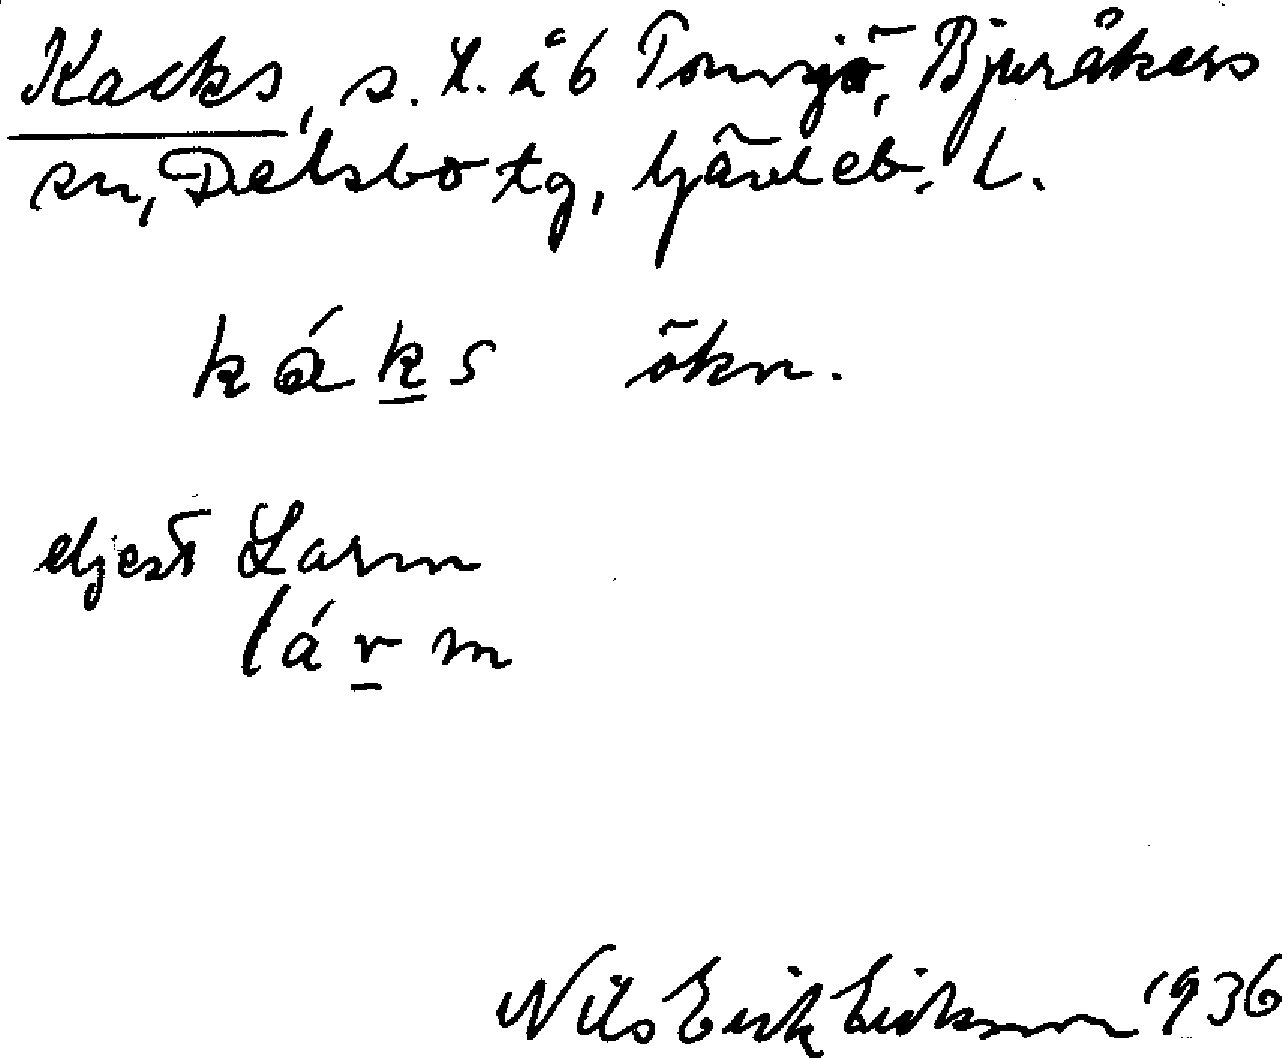 Kacks, s. t. å 6 Tomsjö, Bjuråkers
sn, Delsbo tg, Gävleb. l.
káks ökn.
eljest Larm
lárm
Nils Erik Eriksson 1936